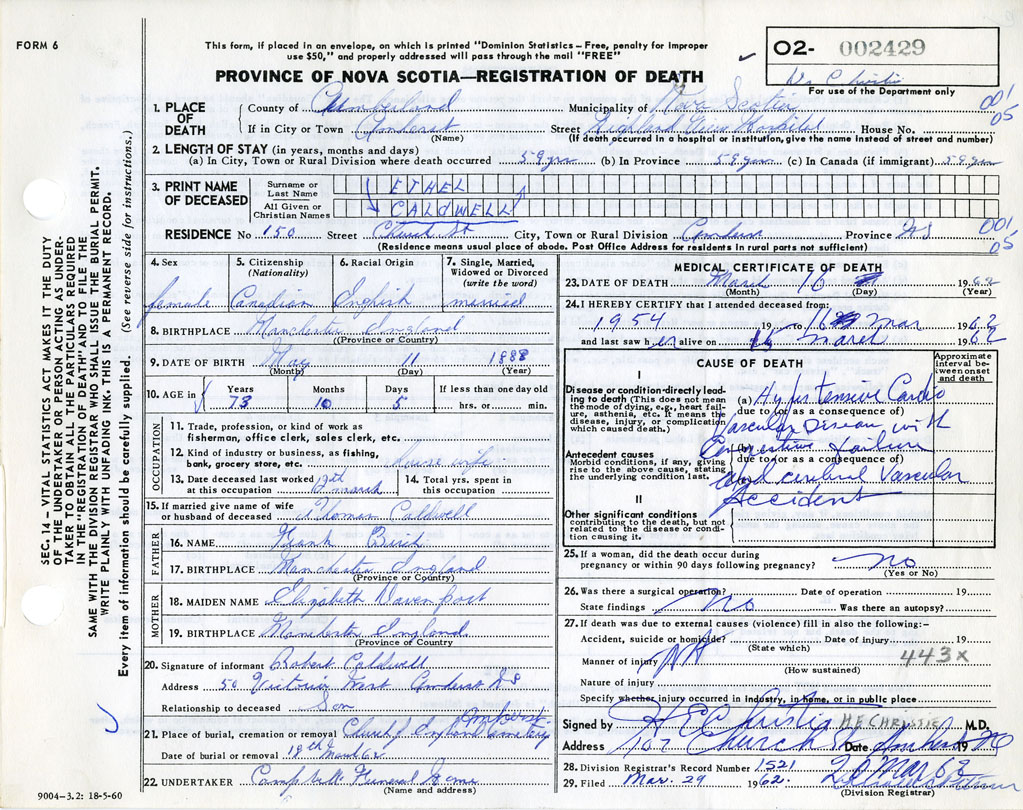 FORM 6
This form, if placed in an envelope, on which is printed "Dominion Statistics – Free, penalty for improper
use $50," and properly addressed will pass through the mail "FREE"
PROVINCE OF NOVA SCOTIA—REGISTRATION OF DEATH
O2- 002429
For use of the Department only
1. PLACE OF DEATH
County of Cumberland Municipality of Nova Scotia 001
If in City or Town Amherst Street Highland View Hospital House No. 05
(Name) (If death occurred in a hospital or institution, give the name instead of street and number)
2. LENGTH OF STAY (in years, months and days)
(a) In City, Town or Rural Division where death occurred 59 yrs (b) In Province 59 yrs (c) In Canada (if immigrant) 59 yrs
3. PRINT NAME OF DECEASED
Surname or Last Name ETHEL
All Given or Christian Names CALDWELL
RESIDENCE No 150 Street Church St City, Town or Rural Division Amherst Province NS 001 05
(Residence means usual place of abode. Post Office Address for residents in rural parts not sufficient)
4. Sex female
5. Citizenship (Nationality) Canadian
6. Racial Origin English
7. Single, Married, Widowed or Divorced (write the word) married
8. BIRTHPLACE Manchester England
(Province or Country)
9. DATE OF BIRTH May 11 1888
(Month) (Day) (Year)
10. AGE in Years 73 Months 10 Days 5 If less than one day old hrs. or min.
OCCUPATION
11. Trade, profession, or kind of work as
fisherman, office clerk, sales clerk, etc.
12. Kind of industry or business, as fishing,
bank, grocery store, etc. House wife
13. Date deceased last worked
at this occupation march
14. Total yrs. spent in
this occupation
15. If married give name of wife
or husband of deceased Thomas Caldwell
FATHER
16. NAME Frank Birch
17. BIRTHPLACE Manchester England
(Province or Country)
MOTHER
18. MAIDEN NAME Elizabeth Davenport
19. BIRTHPLACE Manchester England
(Province or Country)
20. Signature of informant Robert Caldwell
Address 50 Victoria West Amherst NS
Relationship to deceased Son
21. Place of burial, cremation or removal Church of England Cemetery Amherst
Date of burial or removal 19th March 62
22. UNDERTAKER Campbells Funeral Home
(Name and address)
MEDICAL CERTIFICATE OF DEATH
23. DATE OF DEATH March 16 1962
(Month) (Day) (Year)
24. I HEREBY CERTIFY that I attended deceased from:
1954 19 to 16 Mar 1962
and last saw her alive on 16 March 1962
CAUSE OF DEATH
Approximate interval between onset and death
I
Disease or condition-directly leading to death (This does not mean the mode of dying, e.g., heart failure, asthenia, etc. It means the disease, injury, or complication which caused death.)
(a) Hypertensive Cardio
due to (or as a consequence of)
Vascular Disease, with
Antecedent causes
Morbid conditions, if any, giving rise to the above cause, stating the underlying condition last.
(b) Congestive failure
due to (or as a consequence of)
(c) and cerebral Vascular
Accident
II
Other significant conditions
contributing to the death, but not related to the disease or condition causing it.
25. If a woman, did the death occur during
pregnancy or within 90 days following pregnancy? no
(Yes or No)
26. Was there a surgical operation? no Date of operation 19
State findings Was there an autopsy?
27. If death was due to external causes (violence) fill in also the following:-
Accident, suicide or homicide? Date of injury 19
(State which)
443x
Manner of injury
(How sustained)
Nature of injury
Specify whether injury occurred in Industry, in home, or in public place
Signed by H E Christie H E CHRISTIE M.D.
Address 107 Church St Amherst Date 19
28. Division Registrar's Record Number 1521
29. Filed Mar. 29 1962.
(Division Registrar)
SEC. 14 – VITAL STATISTICS ACT MAKES IT THE DUTY
OF THE UNDERTAKER OR PERSON ACTING AS UNDER-
TAKER TO OBTAIN ALL THE PARTICULARS REQUIRED
IN THE "REGISTRATION OF DEATH" AND TO FILE THE
SAME WITH THE DIVISION REGISTRAR WHO SHALL ISSUE THE BURIAL PERMIT.
WRITE PLAINLY WITH UNFADING INK. THIS IS A PERMANENT RECORD.
Every item of information should be carefully supplied. (See reverse side for instructions.)
9004-3.2: 18-5-60